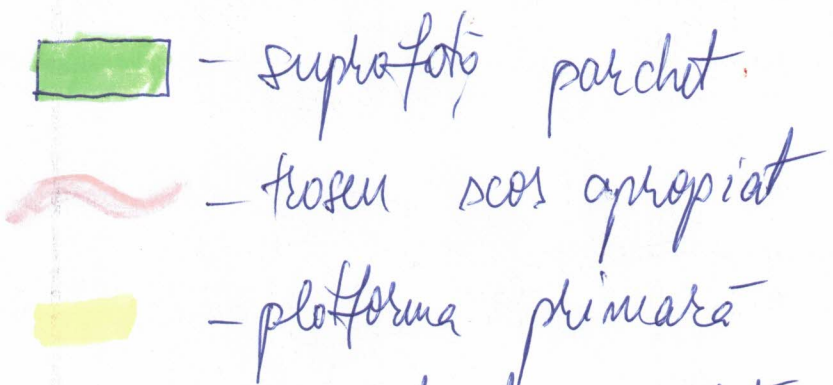 - suprafață parchet
- traseu scos apropiat
- platforma primară